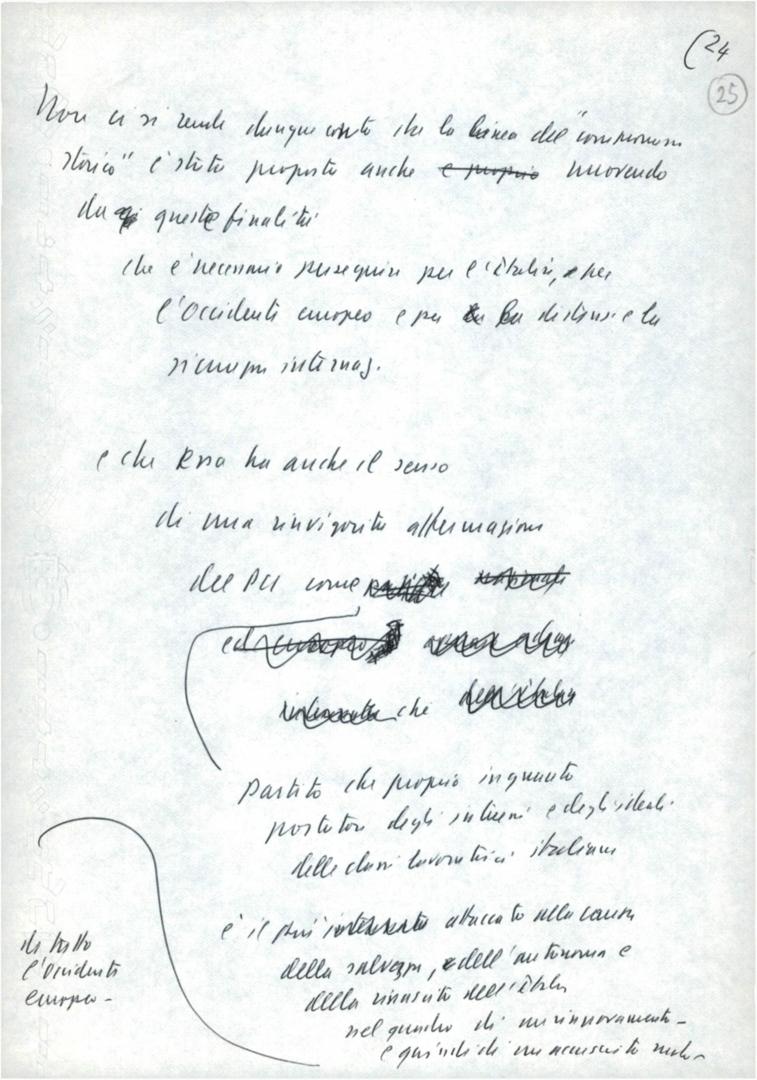 (24
25
Non ci si rende dunque conto che la linea del "compromesso
storico" è stata proposta anche e proprio muovendo
da queste finalità
che è necessario perseguire per l'Italia, per
l'Occidente europeo e per la distens. e la
sicurezza internaz.
e che essa ha anche il senso
di una rinvigorita affermazione
del PCI come
ed europeo
che
partito che proprio in quanto
portatore degli interessi e degli ideali
delle classi lavoratrici italiane
è il più interessato attaccato alla causa
della salvezza, dell'autonomia e
della rinascita dell'Italia
nel quadro di un rinnovamento -
e quindi di un accresciuto ruolo -
di tutto
l'Occidente
europeo -